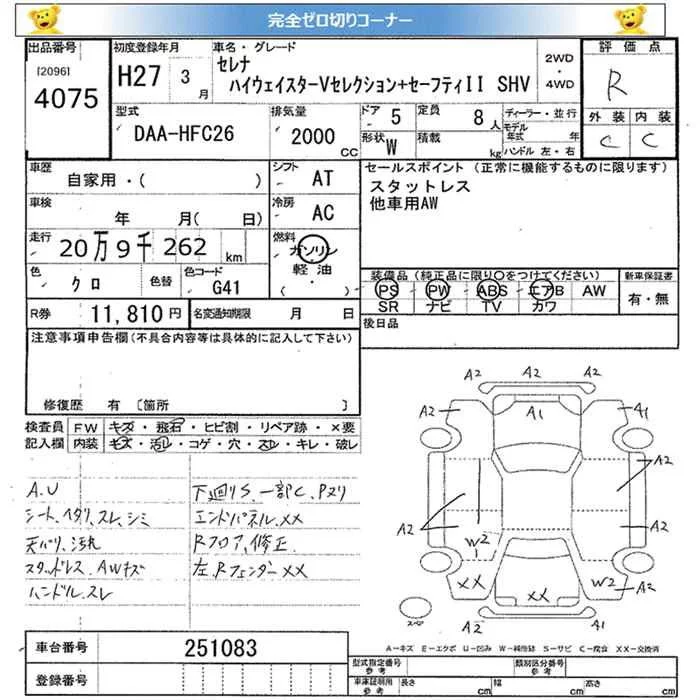 完全ゼロ切りコーナー
出品番号 [2096] 4075
初度登録年月 H27 3月
車名・グレード セレナ
ハイウェイスターVセレクション+セーフティII SHV
2WD・4WD
評価点 R
外装 内装
C C
型式 DAA-HFC26
排気量 2000 CC
ドア 5
定員 8人
形状 W
積載 kg
ディーラー・並行
モデル年式 年
ハンドル 左・右
車歴 自家用・( )
シフト AT
車検 年 月( 日)
冷房 AC
走行 20万9千262 km
燃料 ガソリン・軽油・( )
色 クロ 色替
色コード G41
R券 11,810円
名変通知期限 月 日
セールスポイント(正常に機能するものに限ります)
スタットレス
他車用AW
装備品(純正品に限り○をつけてください)
PS PW ABS エアB AW
SR ナビ TV カワ
新車保証書 有・無
後日品
注意事項申告欄(不具合内容等は具体的に記入して下さい)
修復歴 有 〔箇所 〕
検査員記入欄
FW キズ・飛石・ヒビ割・リペア跡・×要
内装 キズ・汚レ・コゲ・穴・スレ・キレ・破レ
A.U
シート、ヘタリ、スレ、シミ
天バリ、汚れ
スタッドレス、AWキズ
ハンドル、スレ
下廻りS、一部C、Pヌリ
エンドパネル、XX
Rフロア、修正
左、RフェンダーXX
A2 A2 A2
A2 A1 A1
A2
A2 A2
W2
XX XX W2 A2
スペア
A2 A1
A-キズ E-エクボ U-凹み W-補修跡 S-サビ C-腐食 XX-交換済
車台番号 251083
登録番号
型式指定番号 参考
類別区分番号 参考
車庫証明用 参考 長さ cm 幅 cm 高さ cm